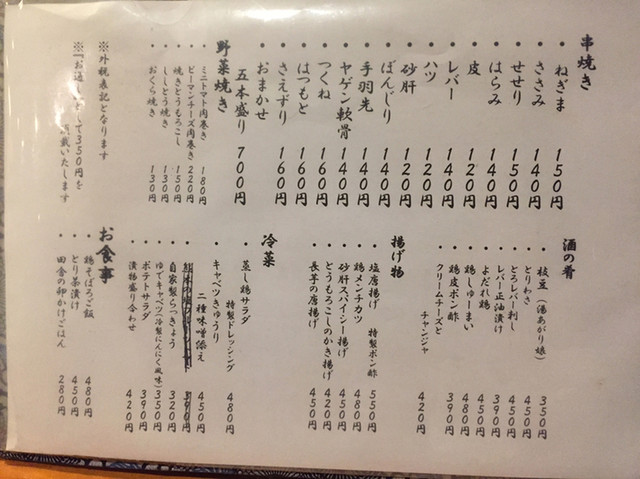 串焼き
・ねぎま 150円
・ささみ 140円
・せせり 150円
・はらみ 140円
・皮 120円
・レバー 140円
・ハツ 120円
・砂肝 120円
・ぼんじり 140円
・手羽先 140円
・ヤゲン軟骨 140円
・つくね 160円
・はつもと 160円
・さえずり 160円
・おまかせ
五本盛り 700円
野菜焼き
・ミニトマト肉巻き 180円
・ピーマンチーズ肉巻き 220円
・焼きとうもろこし 150円
・ししとう焼き 130円
・おくら焼き 130円
※外税表記となります
※『お通し』として350円を
頂戴いたします
酒の肴
・枝豆（湯あがり娘） 350円
・とりわさ 450円
・とろレバー刺し 450円
・レバー正油漬け 390円
・よだれ鶏 450円
・鶏しゅーまい 480円
・鶏皮ポン酢 390円
・クリームチーズと
チャンジャ 420円
揚げ物
・塩唐揚げ 特製ポン酢 550円
・鶏メンチカツ 480円
・砂肝スパイシー揚げ 450円
・とうもろこしのかき揚げ 420円
・長芋の唐揚げ 450円
冷菜
・蒸し鶏サラダ
特製ドレッシング 480円
・キャベツきゅうり
二種味噌添え 450円
・自家製らっきょう 320円
・ゆでキャベツ（冷製にんにく風味） 350円
・ポテトサラダ 390円
・漬物盛り合わせ 420円
お食事
・鶏そぼろご飯 480円
・とり茶漬け 450円
・田舎の卵かけごはん 280円